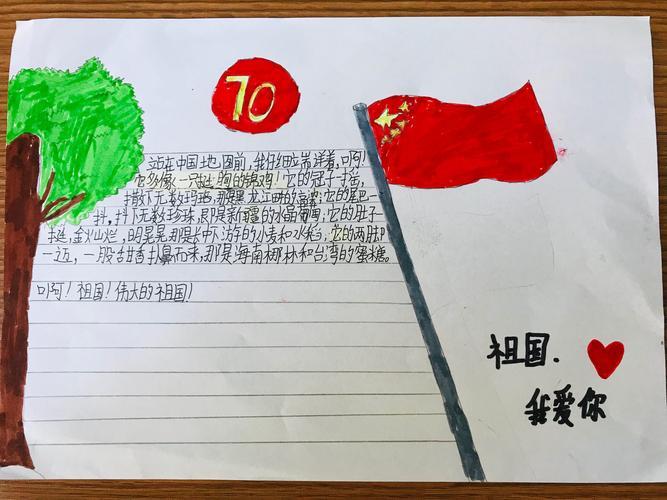 70
站在中国地图前，我仔细端详着，啊！
它多像一只起跑的锦鸡！它的冠子一摇，
撒下无数玛瑙，那是黑龙江畔的高粱；它的尾巴一
抖，抖下无数珍珠，那是新疆的水晶葡萄；它的肚子
一挺，金灿灿，明晃晃那是长中下游的小麦和水稻；它的两脚
一迈，一股甜香扑鼻而来，那是海南椰林和台湾的蜜糖。
啊！祖国！伟大的祖国！
祖国.
我爱你